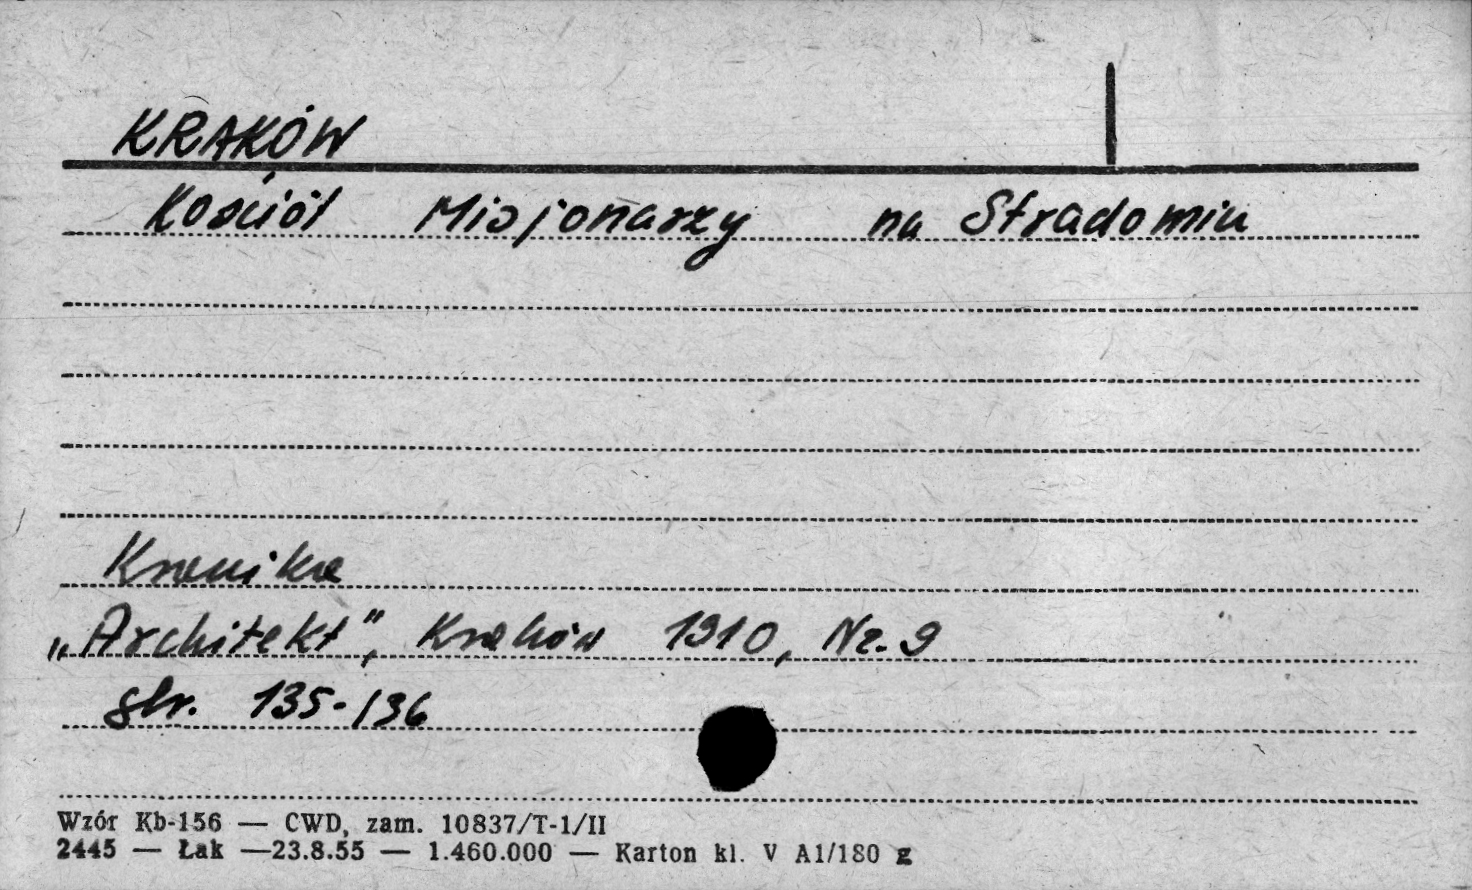 KRAKÓW
Kościół Misjonarzy na Stradomiu
Kronika
„Architekt”, Kraków 1910, Nr. 9
str. 135-136
Wzór Kb-156 — CWD, zam. 10837/T-1/II
2445 — Łak —23.8.55 — 1.460.000 — Karton kl. V A1/180 g